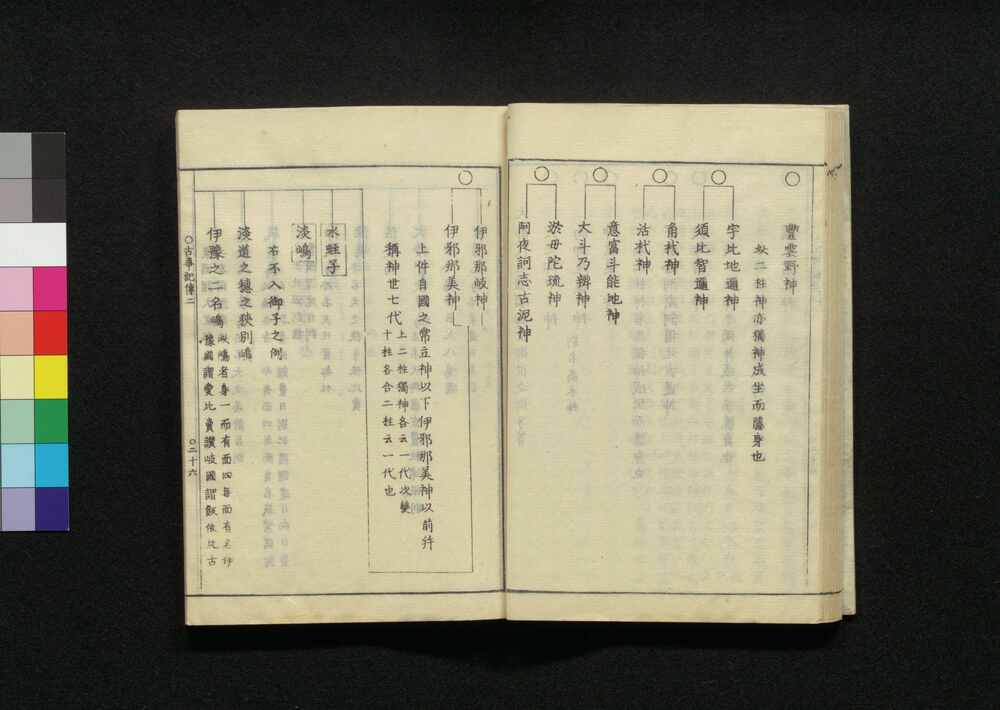 豐雲野神
此二柱神亦獨神成坐而隱身也
宇比地邇神
須比智邇神
角杙神
活杙神
意富斗能地神
大斗乃辨神
淤母陀琉神
阿夜訶志古泥神
伊邪那岐神
伊邪那美神
上件自國之常立神以下伊邪那美神以前并
稱神世七代
上二柱獨神各云一代次雙
十柱各合二柱云一代也
水蛭子
淡嶋
右不入御子之例
淡道之穗之狹別嶋
伊豫之二名嶋
此嶋者身一而有面四每面有名伊
豫國謂愛比賣讚岐國謂飯依比古
古事記傳二
二十六